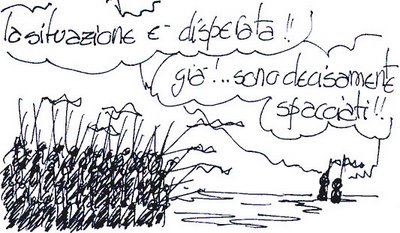 la situazione è disperata!!
già!.. sono decisamente
spacciati!!